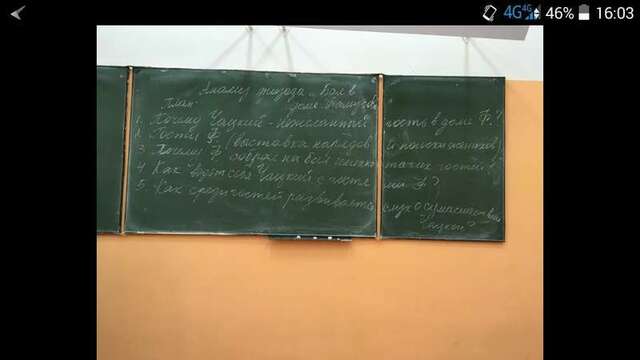 4G 4G 46% 16:03
Анализ эпизода „Бал в
доме Фамусова
План.
1. Почему Чацкий - нежеланный гость в доме Ф.?
2. Гости Ф. (выставка нарядов и поиски женихов)
3. Почему Ф. собрал на бал таких гостей?
4. Как ведёт себя Чацкий с гостями Ф.?
5. Как среди гостей развивается слух о сумасшествии
Чацкого?